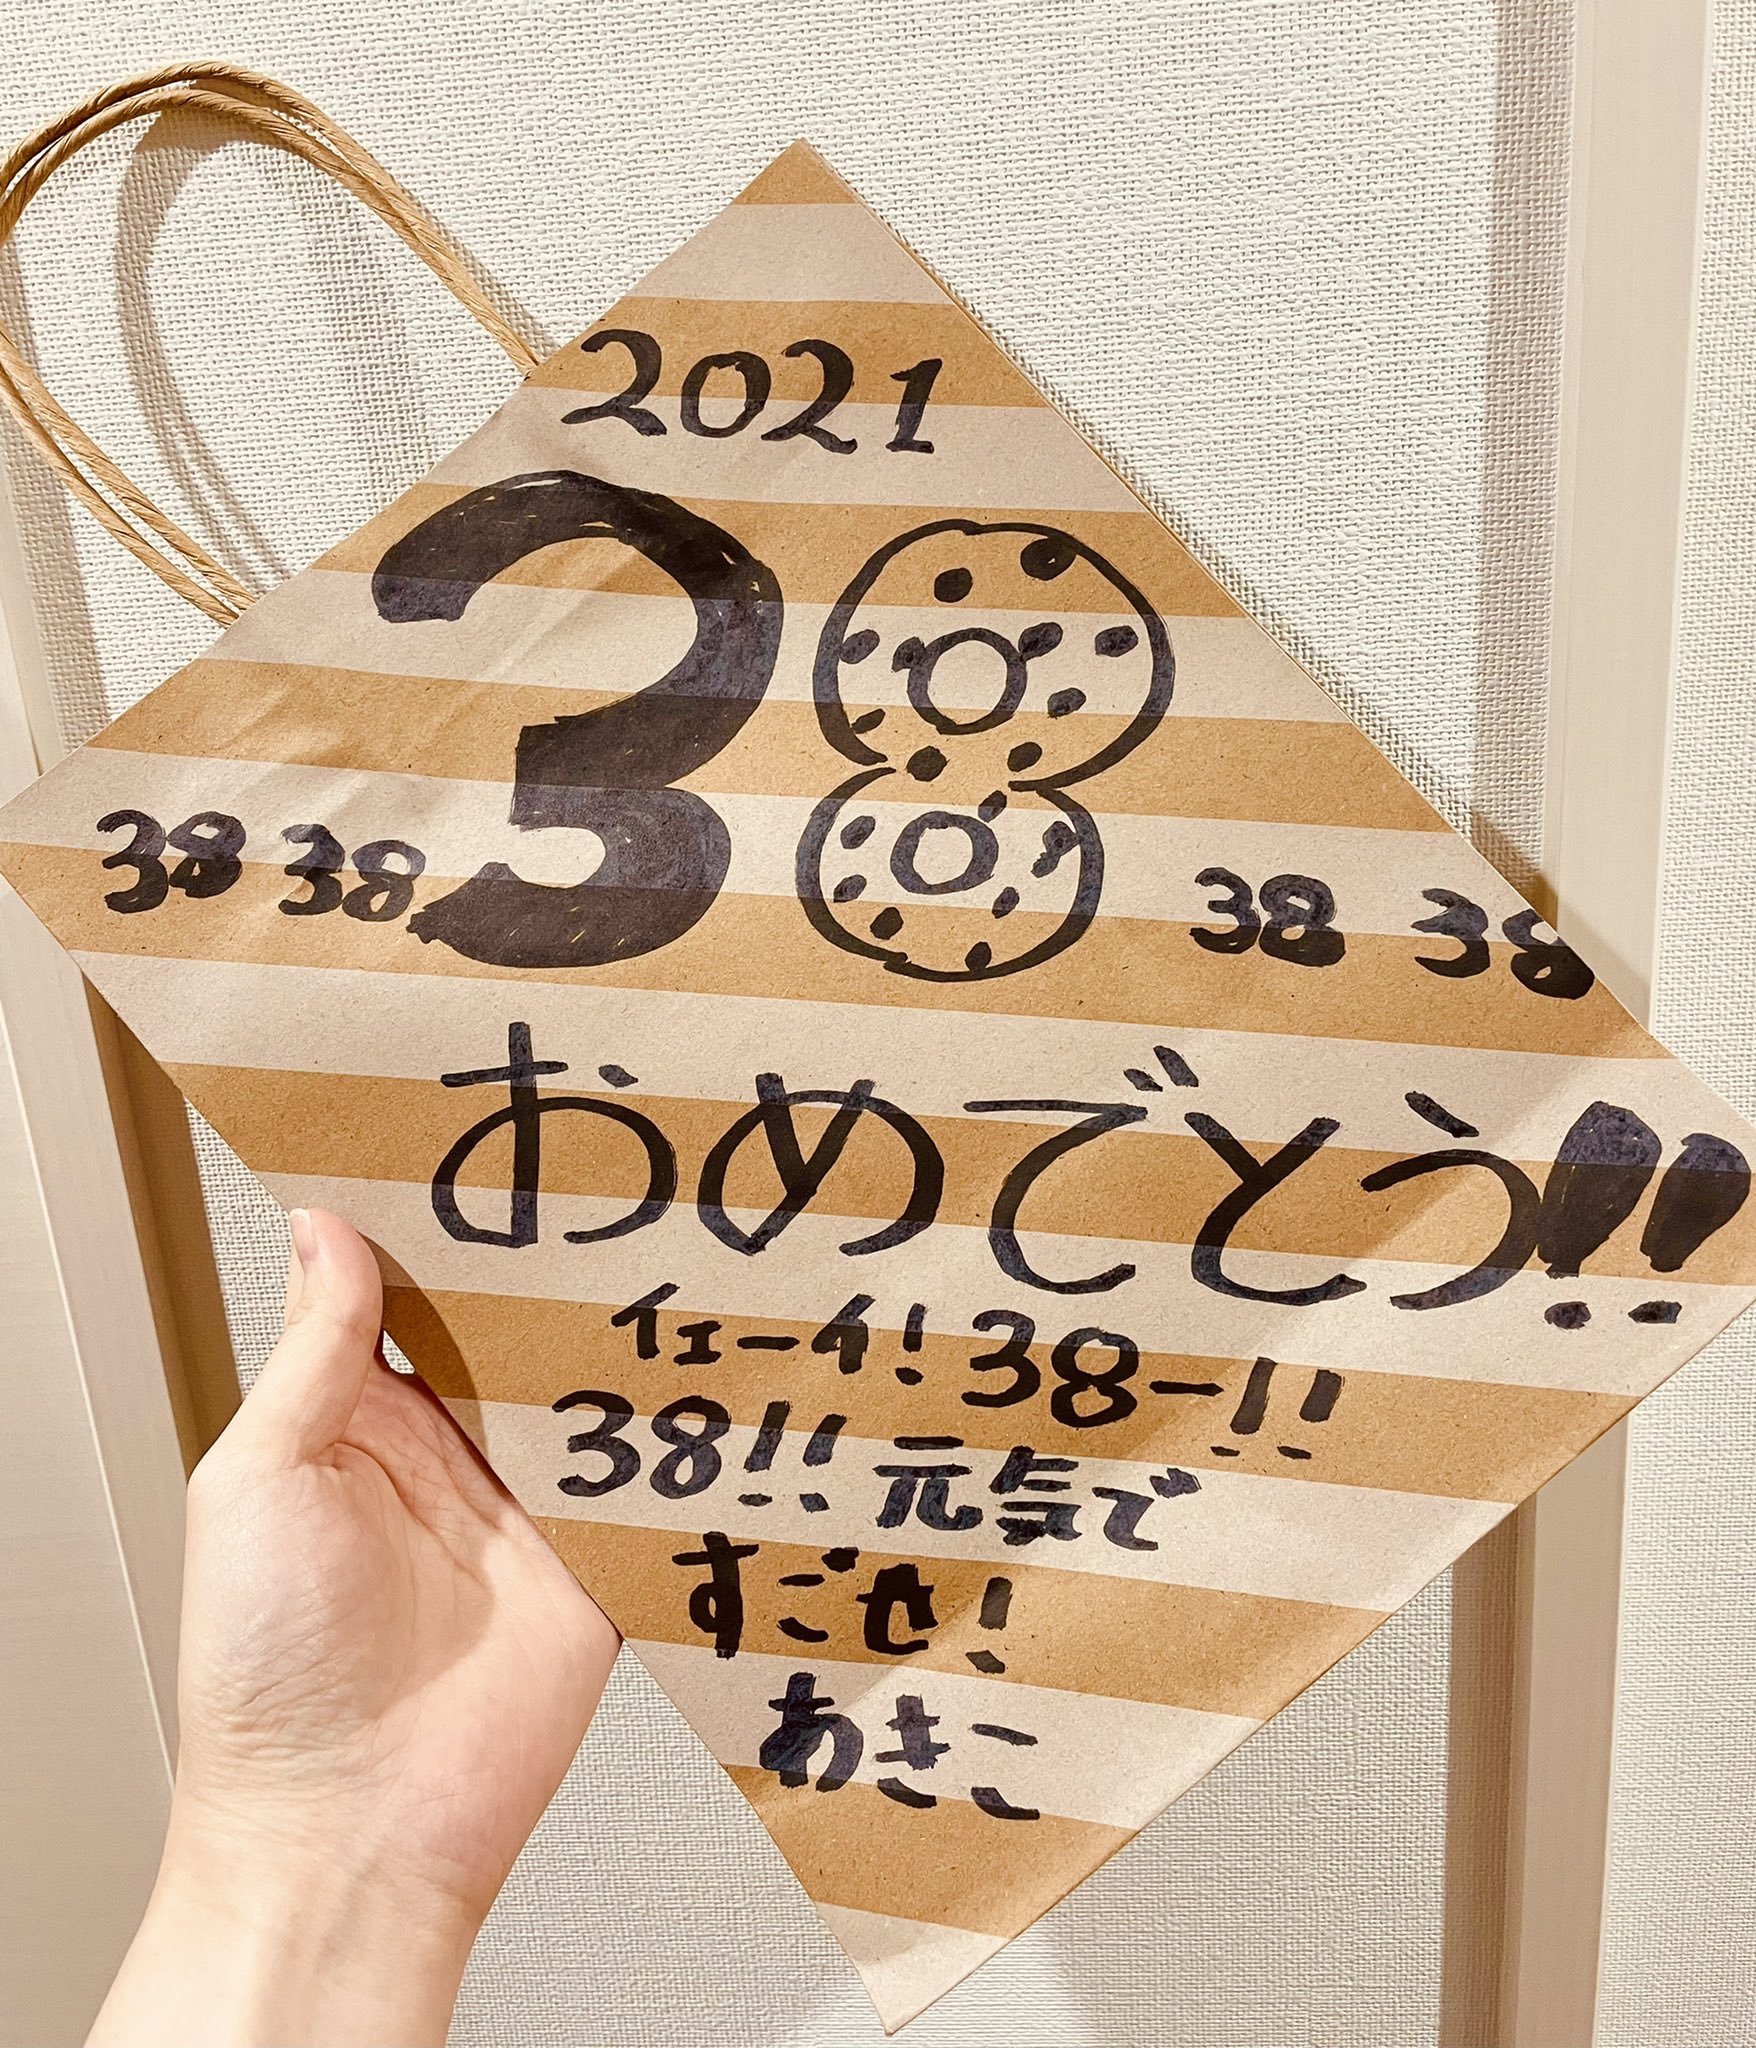 2021
38
38 38 38 38
おめでとう!!
イェーイ!38ー!!
38!!元気で
すごせ!
あきこ